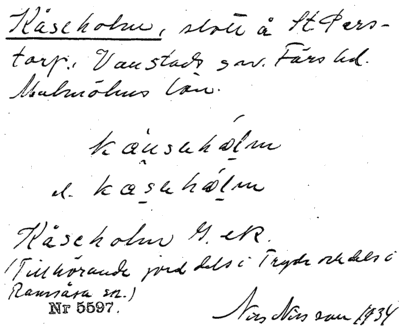 Kåseholm, slott å St Pers-
torp, Vanstads sn. Färs hd.
Malmöhus län.
kåuseholm
el. kaseholm
Kåseholm G. ek.
(Tillhörande jord dels i Tryde och dels i
Ramsåsa sn.)
Nr 5597.
Nils Nilsson 1934